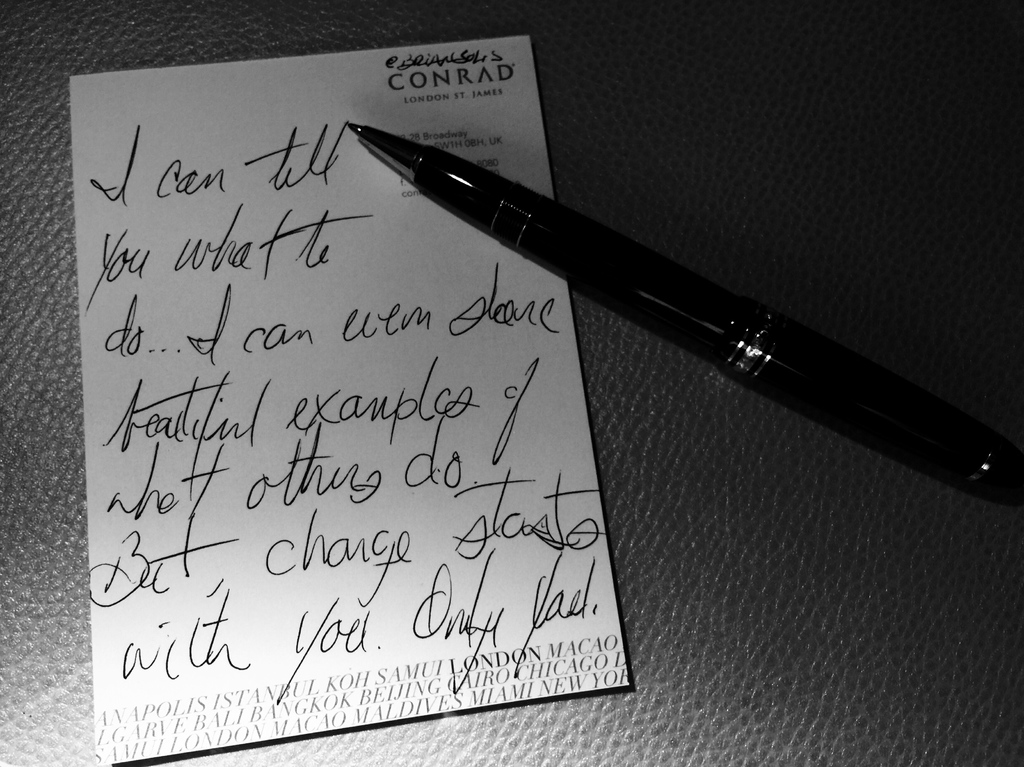 @BRIANSOLIS
CONRAD
LONDON ST. JAMES
28 Broadway
SW1H 0BH, UK
8080
I can tell
you what to
do... I can even share
beautiful examples of
what others do.
But, change starts
with you. Only you.
ANAPOLIS ISTANBUL KOH SAMUI LONDON MACAO
LGARVE BALI BANGKOK BEIJING CAIRO CHICAGO D
SAMUI LONDON MACAO MALDIVES MIAMI NEW YOR